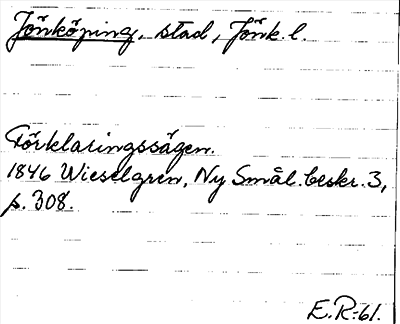 Jönköping, stad, Jönk. l.
Förklaringssägen.
1846 Wieselgren, Ny Smål. beskr. 3,
p. 308.
E.R-61.